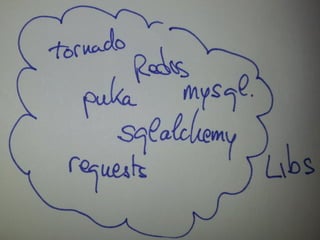 tornado
Redis
puka mysql.
sqlalchemy
requests
Libs